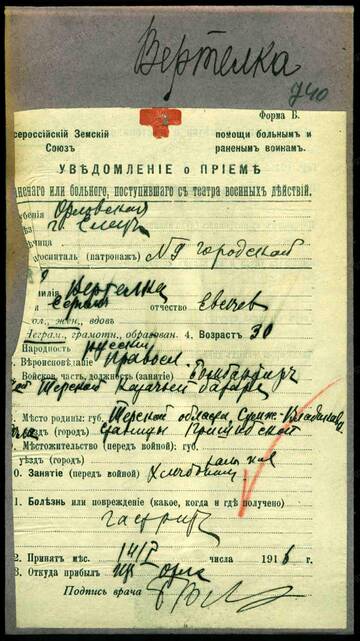 Вертелка
740
Форма В.
сероссійскій Земскій
Союзъ
помощи больнымъ и
раненымъ воинамъ.
УВѢДОМЛЕНІЕ о ПРІЕМѢ
аненаго или больного, поступившаго съ театра военныхъ дѣйствій.
бернія Орловская
г. Елецъ
ьница
оспиталь (патронажъ) №9 городской
милія Вертелка
Сергѣй отчество Евсеев
ол., жен., вдов
Неграм., грамотн., образован. 4. Возрастъ 30
Народность русский
. Вѣроисповѣданіе Правосл.
. Войсков. часть, должность (занятіе) Бомбардиръ
Терской Казачьей батареи
. Мѣсто родины: губ. Терской области,
ѣздъ (городъ) станицы
. Мѣстожительство (передъ войной): губ.
уѣздъ (городъ)
0. Занятіе (передъ войной)
1. Болѣзнь или поврежденіе (какое, когда и гдѣ получено)
гастритъ
2. Принятъ мѣс. 14/I числа 1916 г.
3. Откуда прибылъ из Орла
Подпись врача